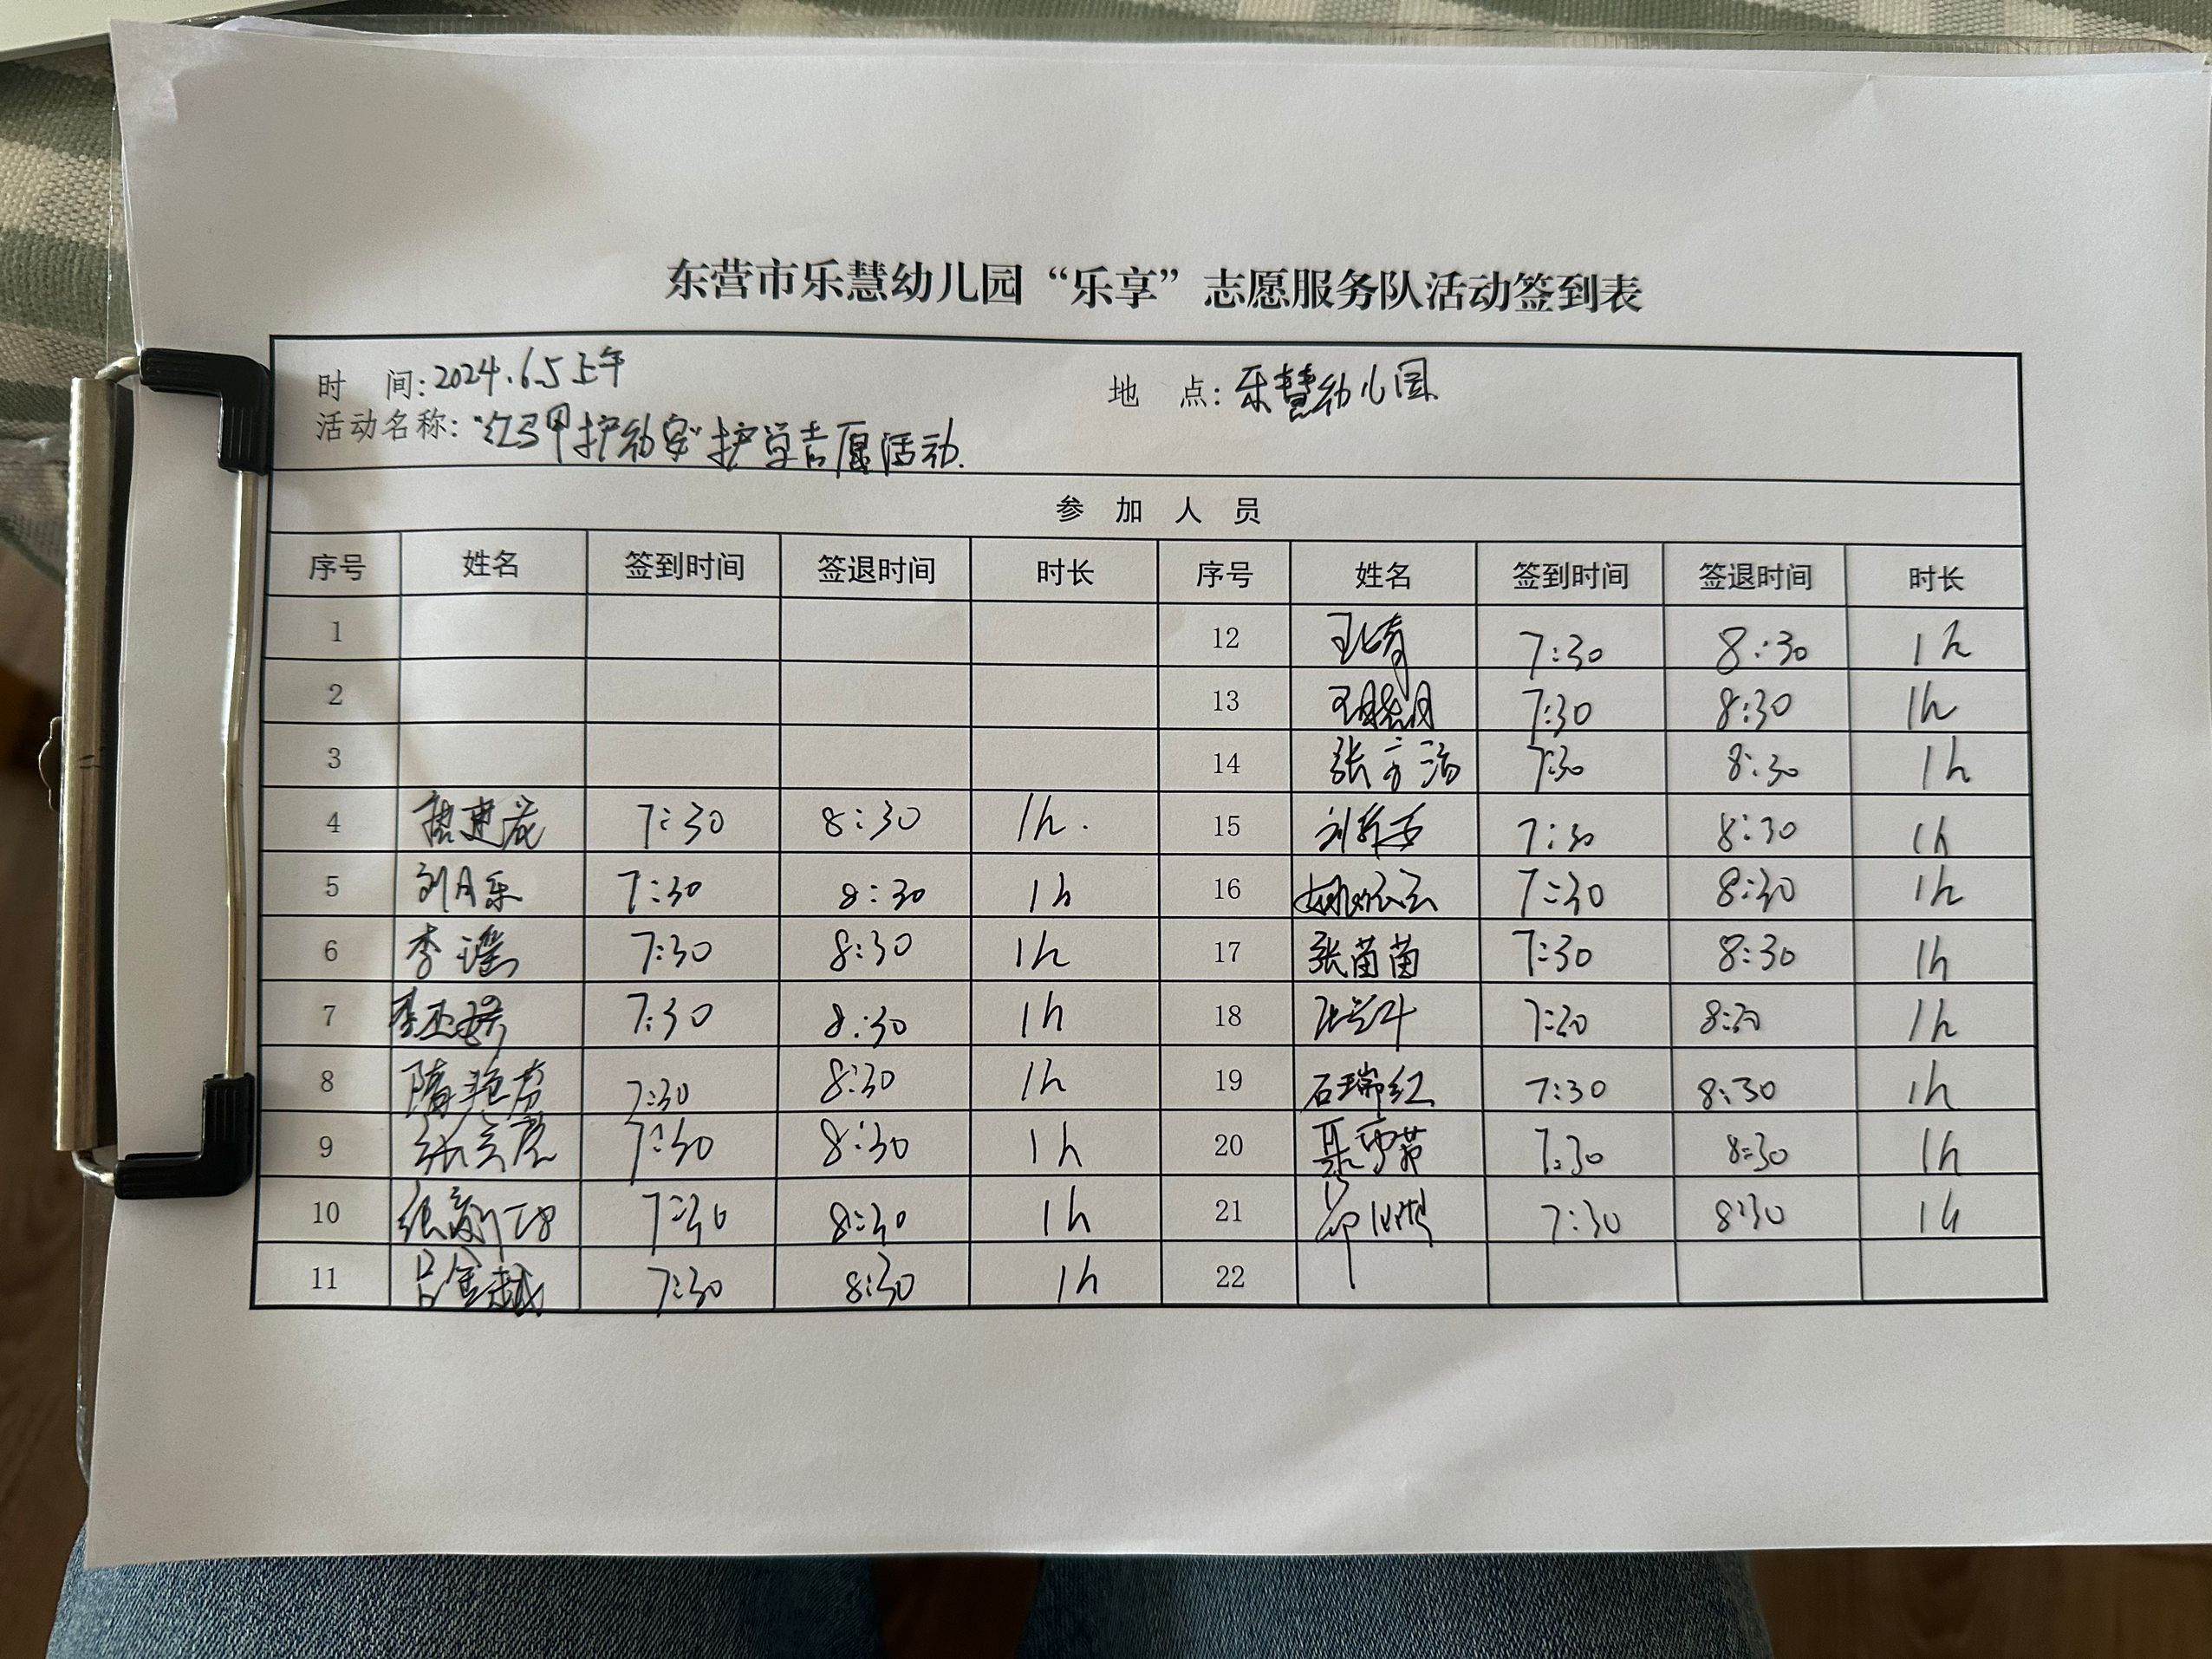 东营市乐慧幼儿园“乐享”志愿服务队活动签到表
时 间: 2024.6.5 上午 地 点: 乐慧幼儿园
活动名称: “红马甲护幼安”护学志愿活动.
参 加 人 员
序号 姓名 签到时间 签退时间 时长 序号 姓名 签到时间 签退时间 时长
1 12 7:30 8:30 1h
2 13 7:30 8:30 1h
3 14 张 7:30 8:30 1h
4 7:30 8:30 1h. 15 刘 7:30 8:30 1h
5 刘月乐 7:30 8:30 1h 16 姚 7:30 8:30 1h
6 李瑶 7:30 8:30 1h 17 张苗苗 7:30 8:30 1h
7 李 7:30 8:30 1h 18 7:30 8:30 1h
8 隋艳芳 7:30 8:30 1h 19 石瑞红 7:30 8:30 1h
9 张 7:30 8:30 1h 20 聂 7:30 8:30 1h
10 张 7:30 8:30 1h 21 7:30 8:30 1h
11 吕金越 7:30 8:30 1h 22